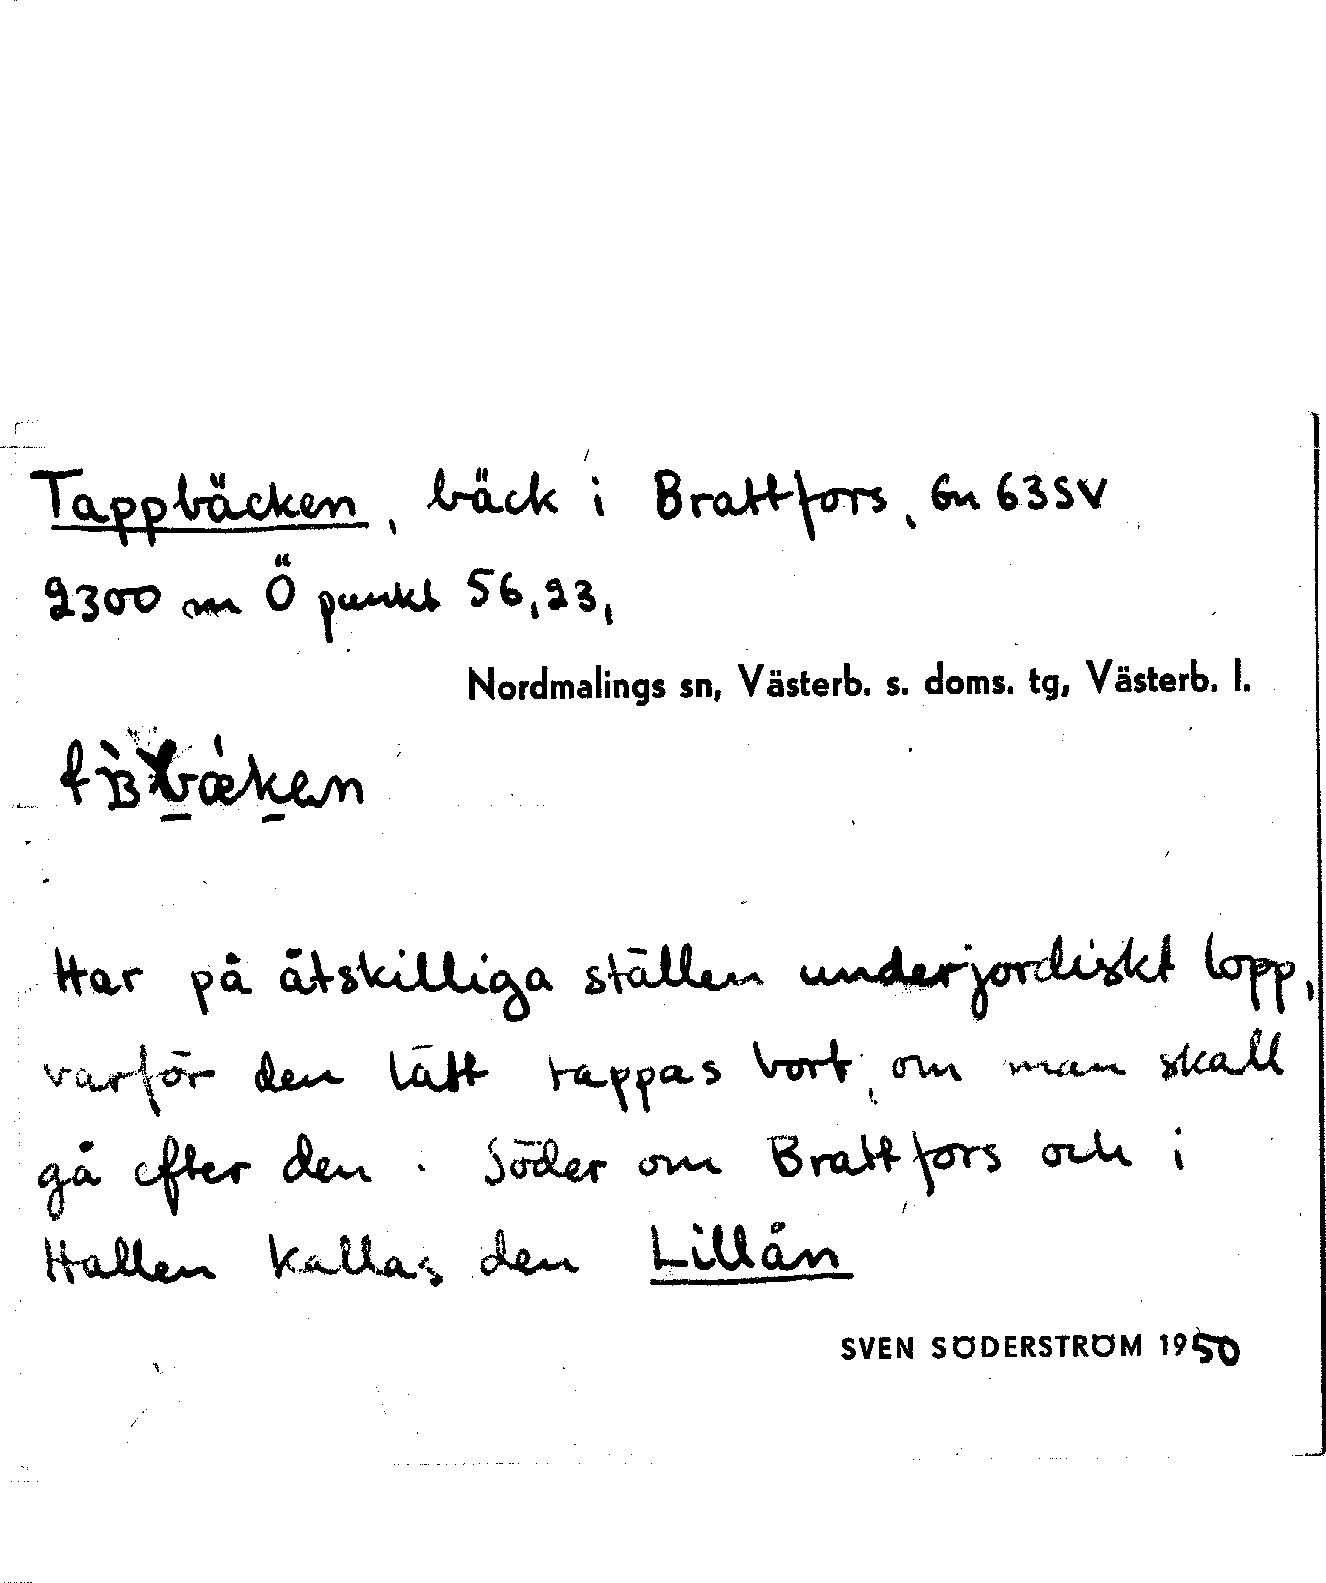 Tappbäcken, bäck i Brattfors, Gn 63SV
2300 m Ö punkt 56,23,
Nordmalings sn, Västerb. s. doms. tg, Västerb. l.
Har på åtskilliga ställen underjordiskt lopp,
varför den lätt tappas bort, om man skall
gå efter den. Söder om Brattfors och i
Hallen kallas den Lillån
SVEN SÖDERSTRÖM 1950